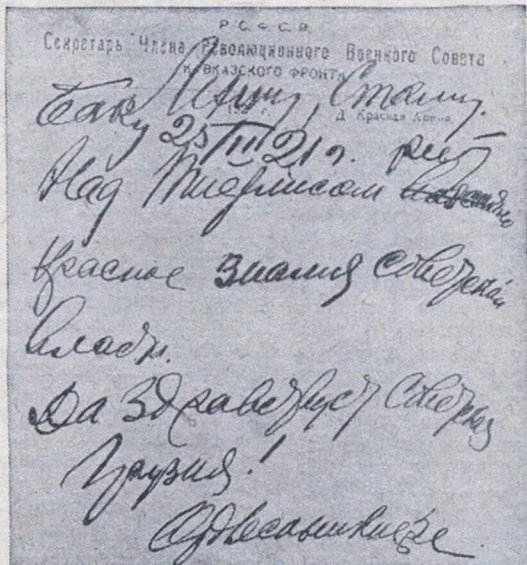 Р.С.Ф.С.Р.
Секретарь Члена Революционного Военного Совета
КАВКАЗСКОГО ФРОНТА
Баку Ленину, Сталину.
Д. Красная Армия
25/II 21 г. реет
Над Тифлисом
Красное знамя советской
власти.
Да здравствует советская
Грузия!
Орджоникидзе